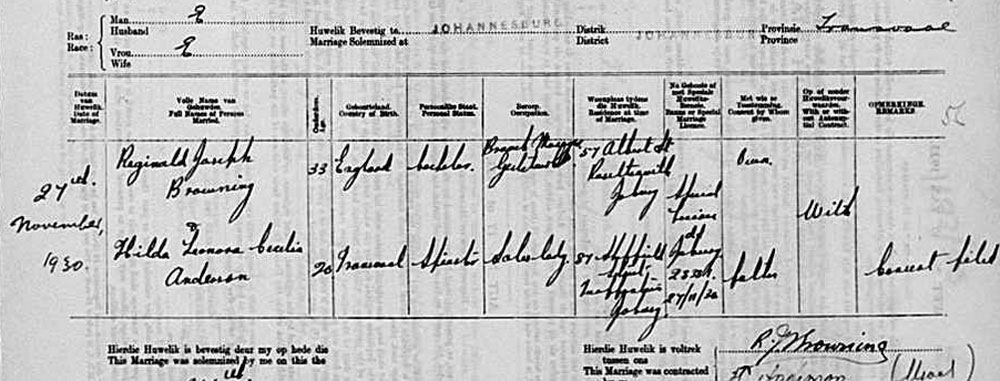 Ras:
Race:
Man
Husband
E
Vrou
Wife
E
Huwelik Bevestig te
Marriage Solemnized at
JOHANNESBURG
Distrik
District
JOHANNESBURG
Provinsie
Province
Transvaal
Datum
van
Huwelik.
Date of
Marriage.
Volle Name van
Gehuwdes.
Full Names of Persons
Married.
Ouderdom.
Age.
Geboorteland.
Country of Birth.
Persoonlike Staat.
Personal Status.
Beroep.
Occupation.
Woonplaas tydens
die Huwelik.
Residence at time
of Marriage.
Na Geboode of
met Spesiale
Huweliks-
lisensie.
Banns or Special
Marriage
Licence.
Met wie se
Toestemming.
Consent by Whom
given.
Op of sonder
Huweliksvoor-
waarden.
With or with-
out Antenup-
tial Contract.
OPMERKINGE.
REMARKS
27
November,
1930.
Reginald Joseph
Browning
33
England
bachelor.
57 Albert St
Jobürg
Special
Own.
With
Hilda Leonora Cecilia
Anderson
20
Transvaal
Spinster
Saleslady.
27/11/30
father
Consent filed
Hierdie Huwelik is bevestig deur my op hede die
This Marriage was solemnized by me on this the
Hierdie Huwelik is voltrek
tussen ons
This Marriage was contracted
R. J. Browning
Anderson